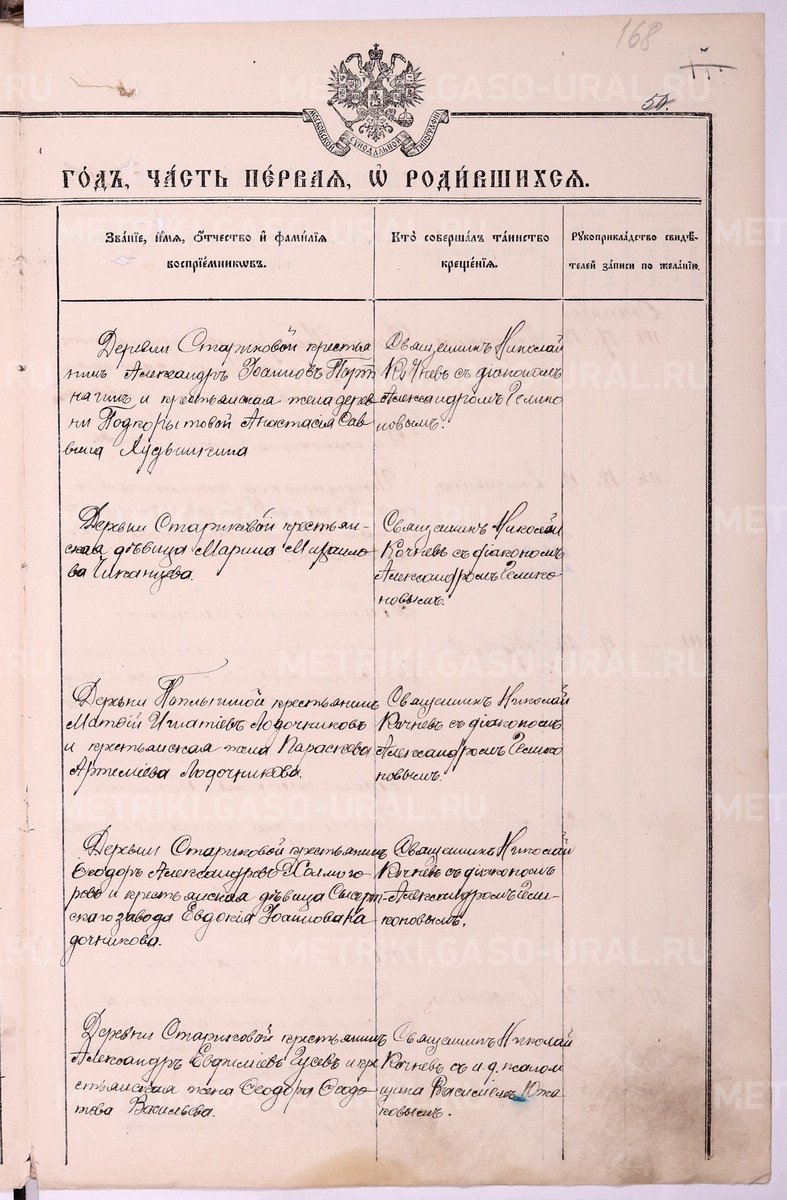 168
50.
МОСКОВСКОЙ СѴНОДАЛЬНОЙ ТИПОГРАФІИ
ГОДЪ, ЧАСТЬ ПЕРВАЯ, Ѡ РОДИВШИХСЯ.
Званіе, имя, отчество и фамилія
воспріемниковъ.
Кто совершалъ таинство
крещенія.
Рукоприкладство свидѣ-
телей записи по желанію.
Деревни Стариковой крестья
нинъ Александръ Іоанновъ Порт
нягинъ и крестьянская жена дерев
ни Подкорытовой Анастасія Сав
вина
Священникъ Николай
Кочневъ съ діакономъ
Александромъ Гелико
новымъ.
Деревни Стариковой крестьян-
ская дѣвица Марина Михаило
ва Чиканцева.
Священникъ Николай
Кочневъ съ діакономъ
Александромъ Гелико
новымъ.
Деревни крестьянинъ
Матѳій Игнатіевъ Лодочниковъ
и крестьянская жена Параскева
Артеміева Лодочникова.
Священникъ Николай
Кочневъ съ діакономъ
Александромъ Гелико
новымъ.
Деревни Стариковой крестьянинъ
Ѳеодоръ Александровъ Холмого
ровъ и крестьянская дѣвица Сысерт-
скаго завода Евдокія Іоаннова Ка
дочникова.
Священникъ Николай
Кочневъ съ діакономъ
Александромъ Гели-
коновымъ.
Деревни Стариковой крестьянинъ
Александръ Евфиміевъ Гусевъ и кре
стьянская жена Ѳеодора Ѳеодо-
това Васильева.
Священникъ Николай
Кочневъ съ и. д. псалом
щика Василіемъ Южа
ковымъ.
METRIKI.GASO-URAL.RU